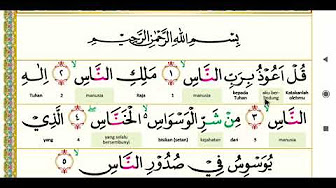 بِسْمِ اللّٰهِ الرَّحْمٰنِ الرَّحِيْمِ
قُلْ اَعُوْذُ بِرَبِّ النَّاسِ ١ مَلِكِ النَّاسِ ٢ اِلٰهِ
Katakanlah olehmu aku ber- lindung kepada Tuhan manusia 1 Raja manusia 2 Tuhan
النَّاسِ ٣ مِنْ شَرِّ الْوَسْوَاسِ الْخَنَّاسِ ٤ الَّذِيْ
manusia 3 dari kejahatan bisikan (setan) yang selalu bersembunyi 4 yang
يُوَسْوِسُ فِيْ صُدُوْرِ النَّاسِ ٥